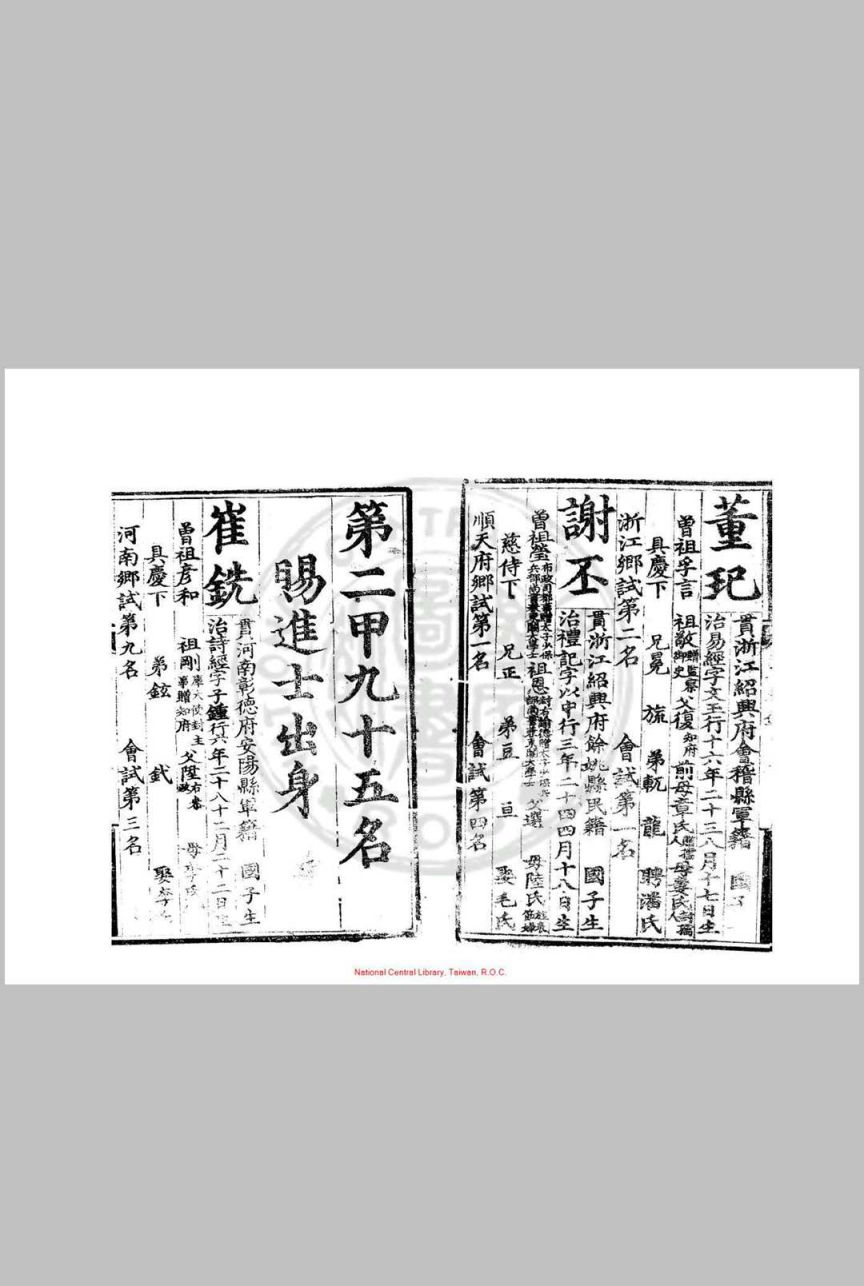 董玘
貫浙江紹興府會稽縣軍籍 國子
治易經字文玉行十六年二十三八月十七日生
曾祖孚言 祖敬贈監察御史 父復知府 前母章氏 母婁氏封孺人
具慶下 兄冕 旂 弟軏 龍 聘潘氏
浙江鄉試第二名 會試第一名
謝丕
貫浙江紹興府餘姚縣民籍 國子生
治禮記字以中行三年二十四四月十八日生
曾祖瑩 祖恩 父選 母陸氏
慈侍下 兄正 弟豆 亘 娶毛氏
順天府鄉試第一名 會試第四名
第二甲九十五名
賜進士出身
崔銑
貫河南彰德府安陽縣軍籍 國子生
治詩經字子鍾行六年二十八十二月二十二日生
曾祖彥和 祖剛 庫大使封主事贈知府 父陞右參政 母李氏
具慶下 弟鉉 䤴 娶李氏
河南鄉試第九名 會試第三名
National Central Library, Taiwan, R.O.C.